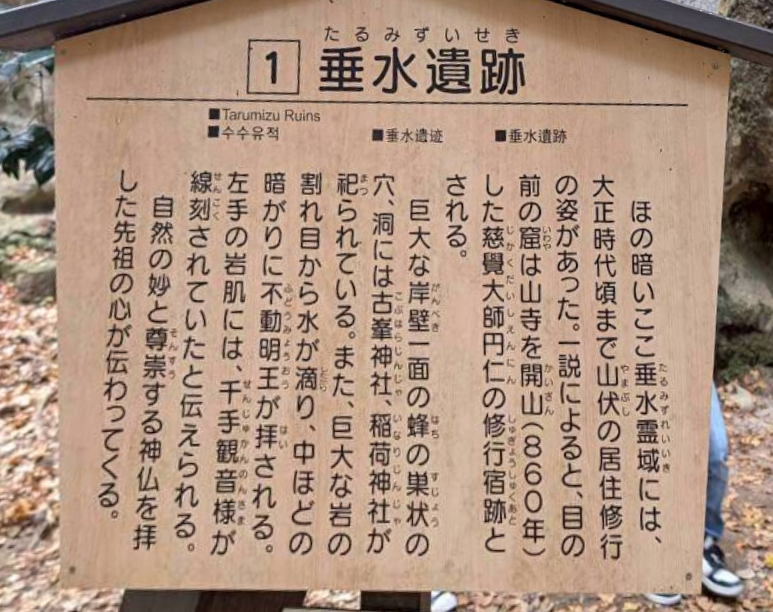 たるみずいせき
1 垂水遺跡
■Tarumizu Ruins
■수수유적 ■垂水遗迹 ■垂水遺跡
ほの暗いここ垂水霊域には、
大正時代頃まで山伏の居住修行
の姿があった。一説によると、目の
前の窟は山寺を開山(860年)
した慈覺大師円仁の修行宿跡と
される。
巨大な岸壁一面の蜂の巣状の
穴、洞には古峯神社、稲荷神社が
祀られている。また、巨大な岩の
割れ目から水が滴り、中ほどの
暗がりに不動明王が拝される。
左手の岩肌には、千手観音様が
線刻されていたと伝えられる。
自然の妙と尊崇する神仏を拝
した先祖の心が伝わってくる。